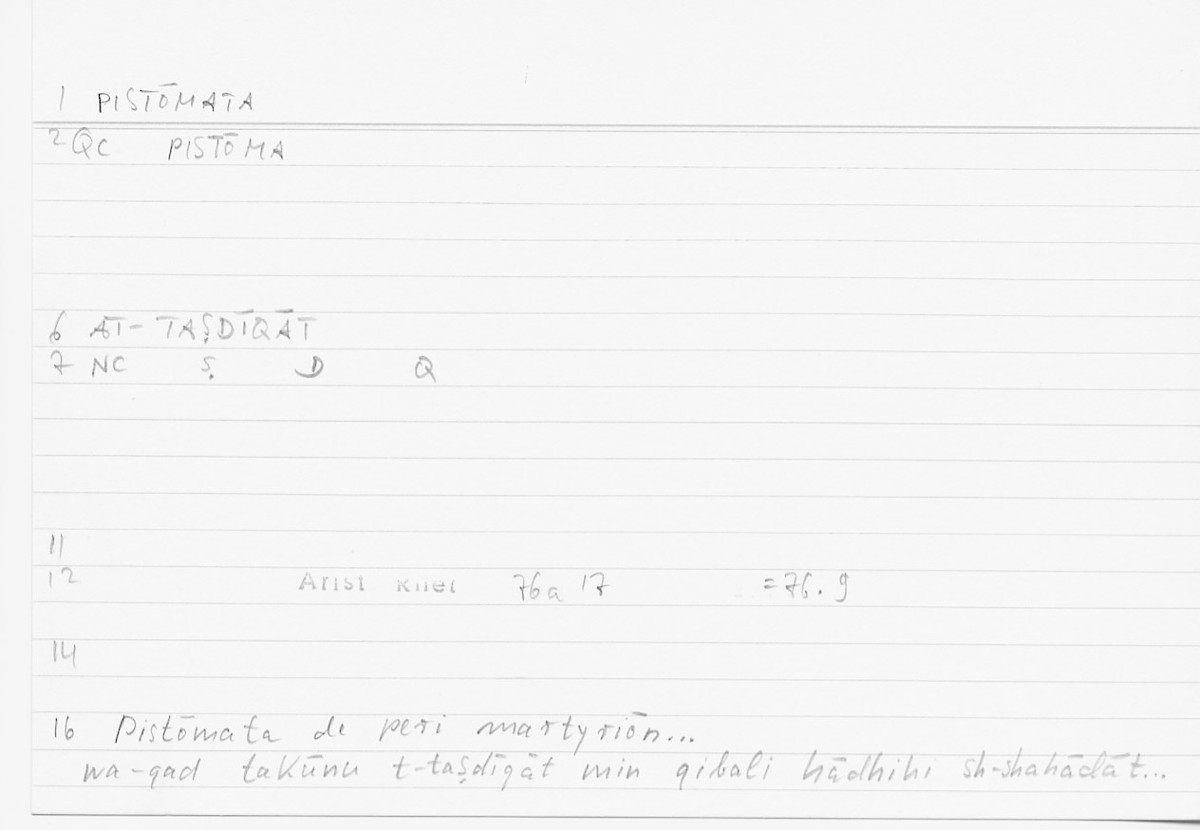 1 PISTŌMATA
2 Qc PISTŌMA
6 AT-TAṢDĪQĀT
7 NC Ṣ D Q
11
12 Arist Rhet 76a 17 =76.9
14
16 Pistōmata de peri martyriōn...
wa-qad takūnu t-taṣdīqāt min qibali hādhihi sh-shahādāt...